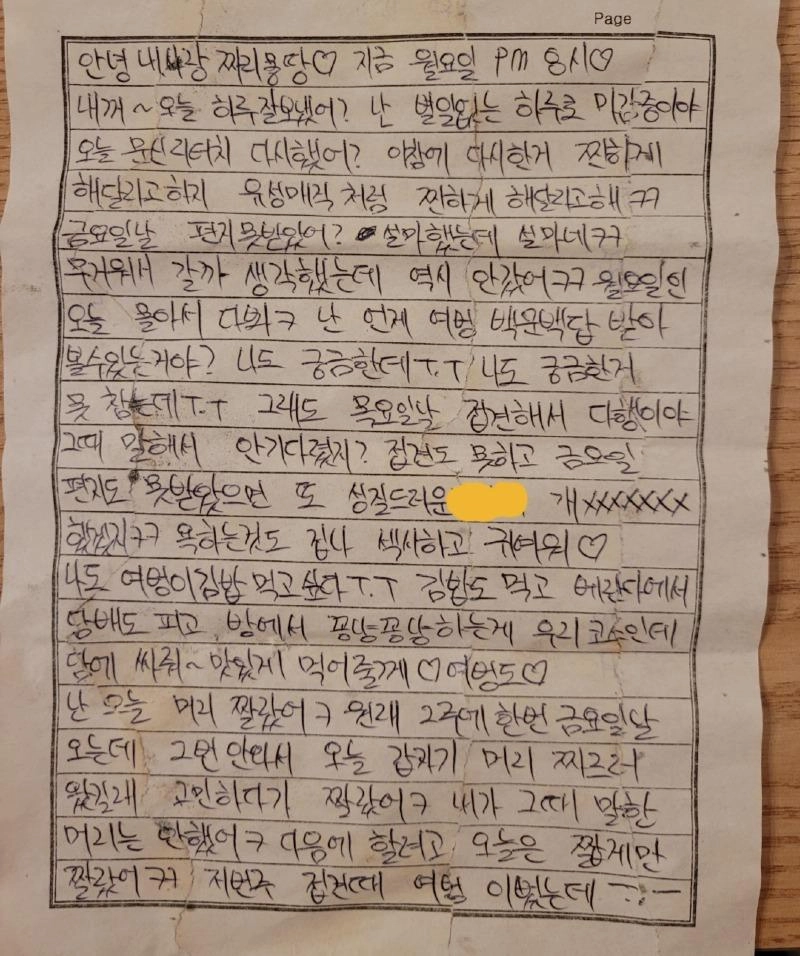 Page
안녕 내사랑 짜리몽땅♡ 지금 월요일 PM 8시♡
내꺼~ 오늘 하루 잘보냈어? 난 별일없는 하루로 마감중이야
오늘 문신리터치 다시했어? 이참에 다시한거 찐하게
해달라고하지 유성매직처럼 찐하게 해달라고해 ㅋㅋ
금요일날 편지못받았어? 설마했는데 설마네ㅋㅋ
무거워서 갈까 생각했는데 역시 안갔어ㅋㅋ 월요일인
오늘 몰아서 다봐ㅋ 난 언제 여벙 백문백답 받아
볼수있는거야? 나도 궁금한데T.T 나도 궁금한거
못 참는데T.T 그래도 목요일날 접견해서 다행이야
그때 말해서 안기다렸지? 접견도 못하고 금요일
편지도 못받았으면 또 성질드러운 개XXXXXXX
했겠지ㅋㅋ 욕하는것도 겁나 섹시하고 귀여워♡
나도 여벙이김밥 먹고싶다T.T 김밥도 먹고 베란다에서
담배도 피고 방에서 퐁냥퐁냥하는게 우리코스인데
담에 싸줘~ 맛있게 먹어줄게♡ 여벙도♡
난 오늘 머리 짤랐어ㅋ 원래 2주에 한번 금요일날
오는데 그먼 안와서 오늘 갑자기 머리 짜르러
왔길래 고민하다가 짤랐어ㅋ 니가 그때 말한
머리는 안했어ㅋ 다음에 할려고 오늘은 짧게만
짤랐어ㅋㅋ 저번주 접견때 여벙 이뻤는데 ㅡ.ㅡ